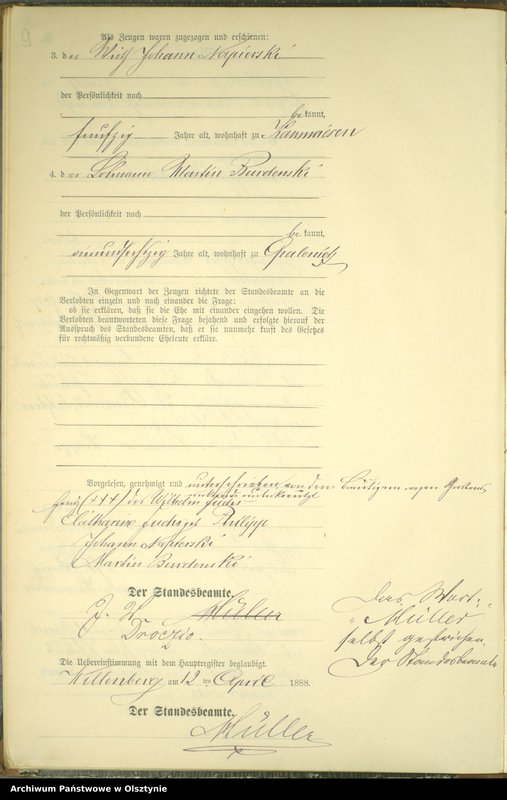 9
Als Zeugen waren zugezogen und erschienen:
3. der Wirth Johann Napierski
der Persönlichkeit nach
be kannt,
fünfzig Jahre alt, wohnhaft zu
4. der Martin Burdenski
der Persönlichkeit nach
be kannt,
Jahre alt, wohnhaft zu Opalenietz
In Gegenwart der Zeugen richtete der Standesbeamte an die
Verlobten einzeln und nach einander die Frage:
ob sie erklären, daß sie die Ehe mit einander eingehen wollen. Die
Verlobten beantworteten diese Frage bejahend und erfolgte hierauf der
Ausspruch des Standesbeamten, daß er sie nunmehr kraft des Gesetzes
für rechtmäßig verbundene Eheleute erkläre.
Vorgelesen, genehmigt und unterschrieben von dem Bräutigam wegen
(+++) des Wilhelm Fuchs
Fuchs geb. Philipp
Johann Napierski
Martin Burdenski
Der Standesbeamte.
J. V. Müller
Droczio.
Das Wort:
"Müller"
selbst gestrichen.
Der Standesbeamte
Die Uebereinstimmung mit dem Hauptregister beglaubigt.
Willenberg am 12 ten April 1888.
Der Standesbeamte.
Müller
Archiwum Państwowe w Olsztynie